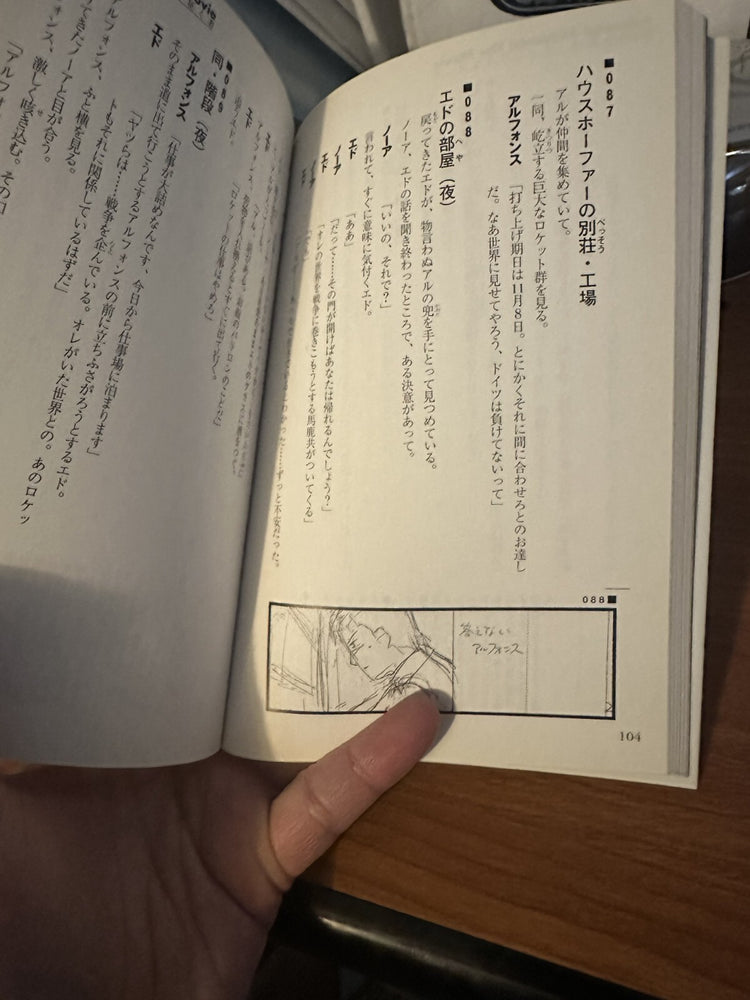 ■087
ハウスホーファーの別荘・工場
アルが仲間を集めていて。
一同、屹立する巨大なロケット群を見る。
アルフォンス「打ち上げ期日は11月8日。とにかくそれに間に合わせろとのお達し
だ。なあ世界に見せてやろう、ドイツは負けてないって」
■088
エドの部屋（夜）
戻ってきたエドが、物言わぬアルの兜を手にとって見つめている。
ノーア、エドの話を聞き終わったところで、ある決意があって。
ノーア「いいの、それで？」
言われて、すぐに意味に気付くエド。
エド「ああ」
ノーア「だって……その門が開けばあなたは帰れるんでしょう？」
エド「オレの世界を戦争に巻きこもうとする馬鹿共がついてくる」
ノーア
エド
088■
答えない
アルフォンス
104
エド
■089
同・階段（夜）
アルフォンス「仕事が大詰めなんです、今日から仕事場に泊まります」
そのまま道に出て行こうとするアルフォンスの前に立ちふさがろうとするエド。
エド「ヤツらは……戦争を企んでいる。オレがいた世界との。あのロケッ
トもそれに関係しているはずだ」
アルフォンス、ふと横を見る。
てきたノーアと目が合う。
ォンス、激しく咳き込む。